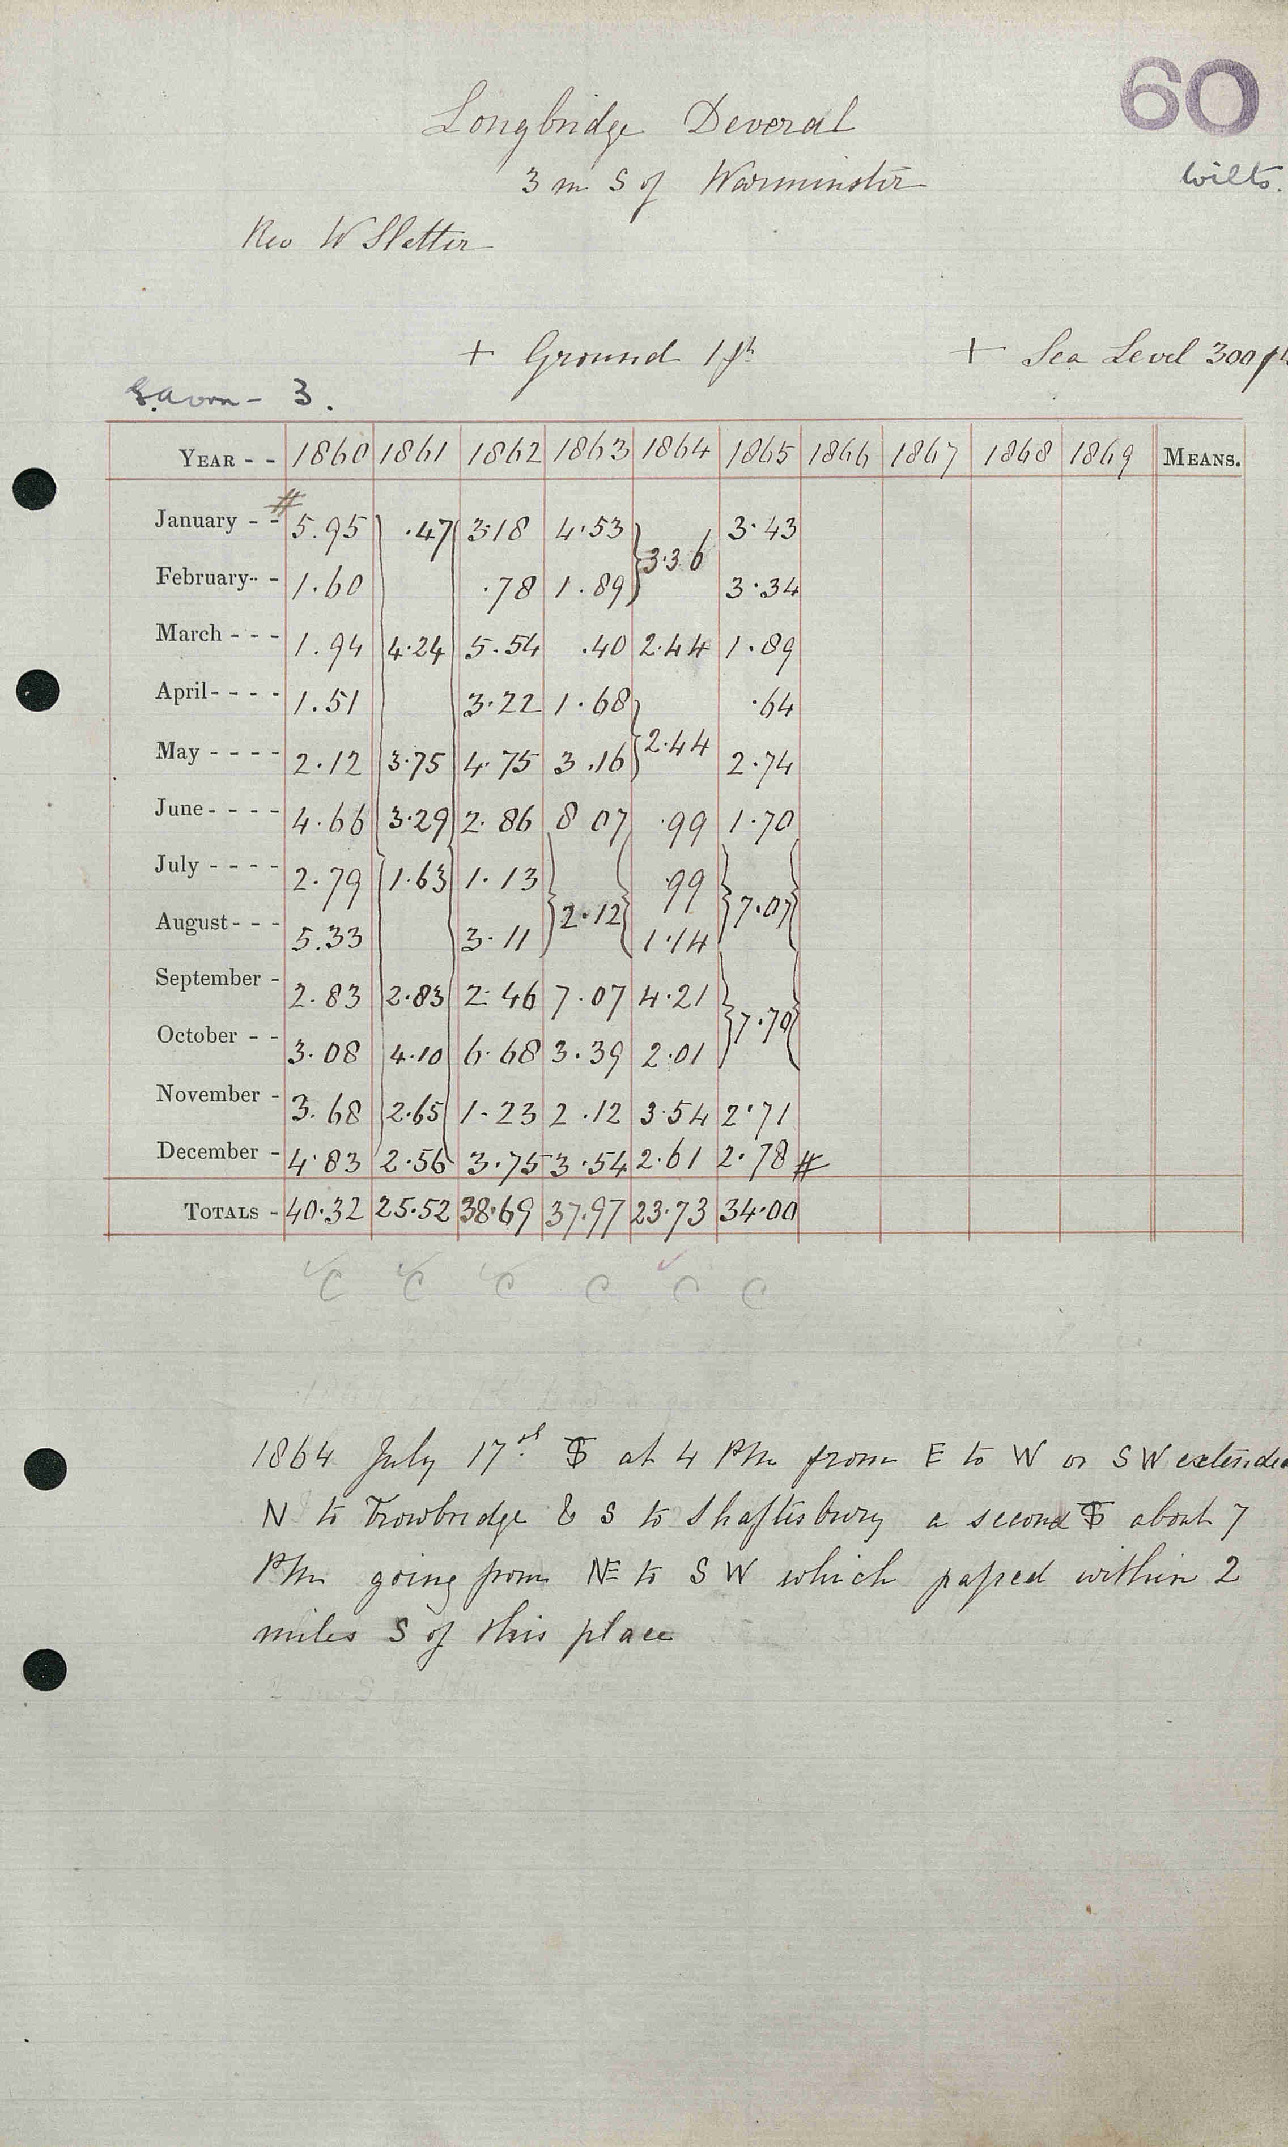 60
Longbridge Deveral
3 m S of Warminster
Wilts.
Rev W Slatter
+ Ground 1 ft + Sea Level 300 ft
S. Avon - 3.
YEAR - - 1860 1861 1862 1863 1864 1865 1866 1867 1868 1869 MEANS.
January - - # 5.95 .47 3.18 4.53 3.36 3.43
February - - 1.60 .78 1.89 3.34
March - - - 1.94 4.24 5.54 .40 2.44 1.89
April - - - - 1.51 3.22 1.68 2.44 .64
May - - - - 2.12 3.75 4.75 3.16 2.74
June - - - - 4.66 3.29 2.86 8 07 .99 1.70
July - - - - 2.79 1.63 1.13 2.12 .99 7.07
August - - - 5.33 3.11 1.14
September - 2.83 2.83 2.46 7.07 4.21 7.70
October - - 3.08 4.10 6.68 3.39 2.01
November - 3.68 2.65 1.23 2.12 3.54 2.71
December - 4.83 2.56 3.75 3.54 2.61 2.78 #
TOTALS - 40.32 25.52 38.69 37.97 23.73 34.00
C C C C C C
1864 July 17 at 4 PM from E to W or SW extended
N to Trowbridge & S to Shaftesbury a second about 7
PM going from NE to SW which passed within 2
miles S of this place